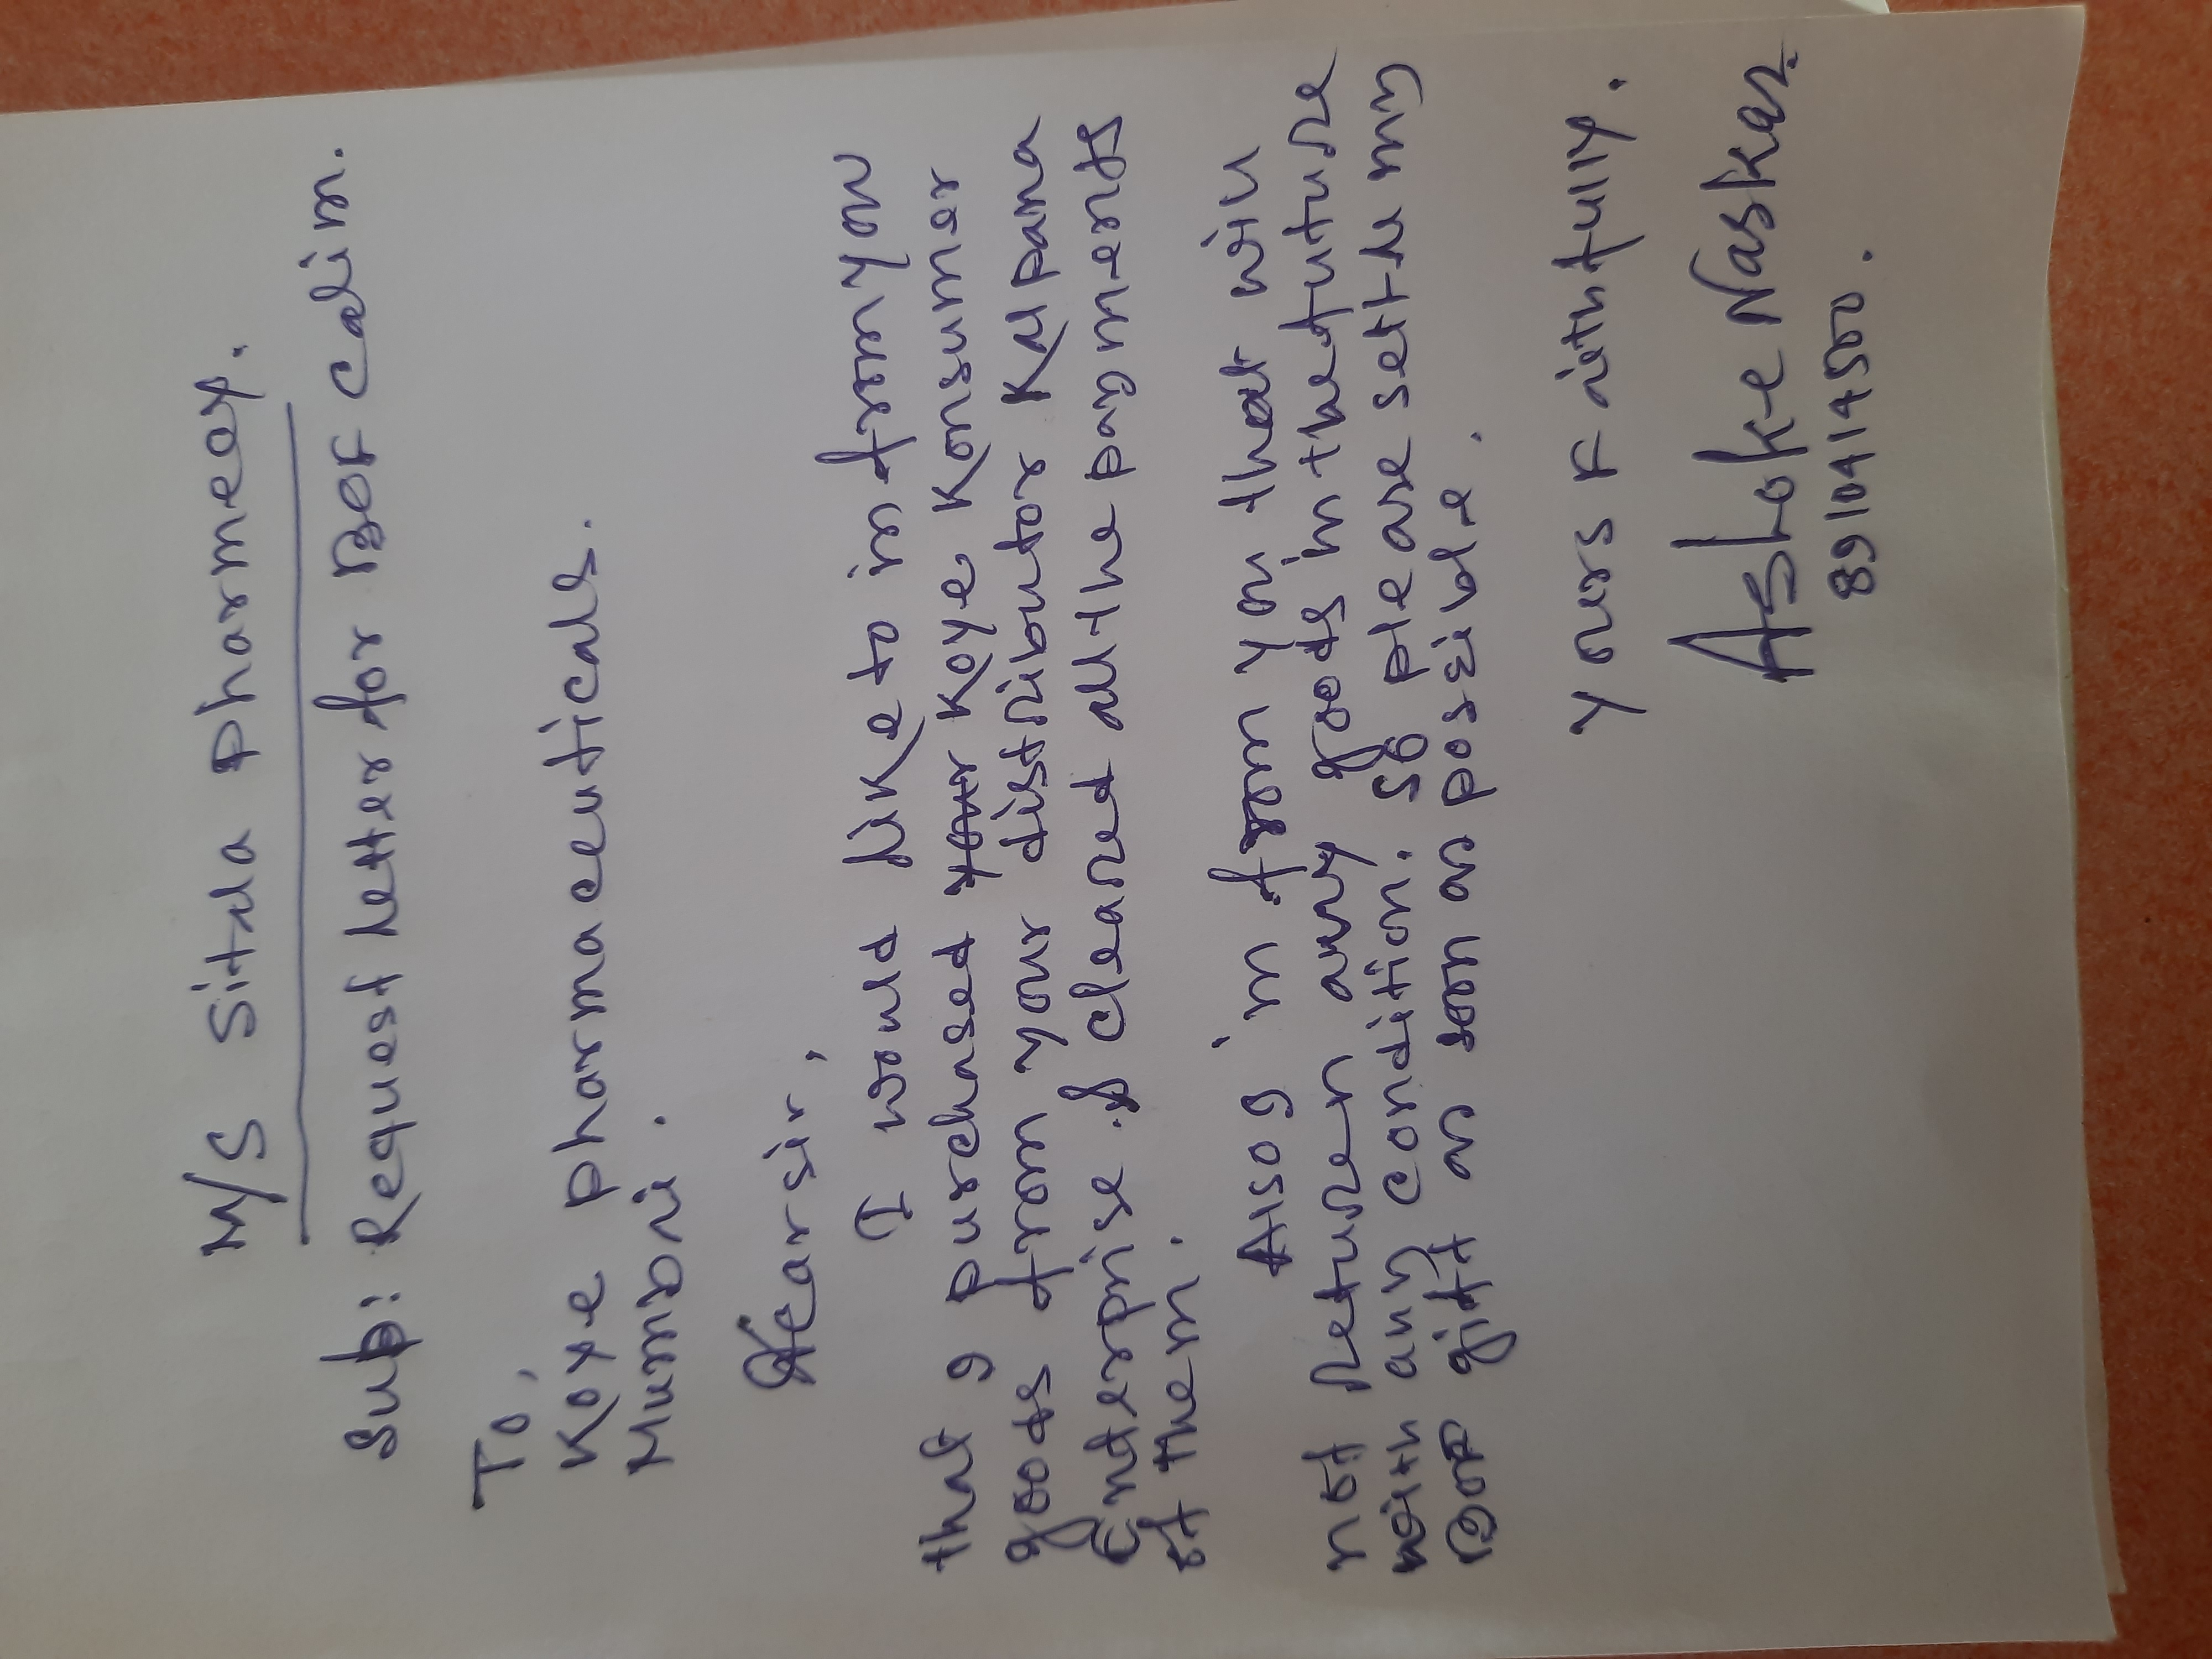 M/S Sitala Pharmecy.
Sub: Request letter for Box Calim.
To,
Koye pharmaceuticals.
Mumbai.
Dear sir,
I would like to inform you
that 6 purchased Koye Konsumer
goods from your distributer Khana
Enterprise & cleared all the
of them.
Also 6 inform you that will
not return any goods in the future
with any condition. So please settle my
gift as soon as possible.
Yours Faithfully.
Ashoke Naskar.
8910414502.